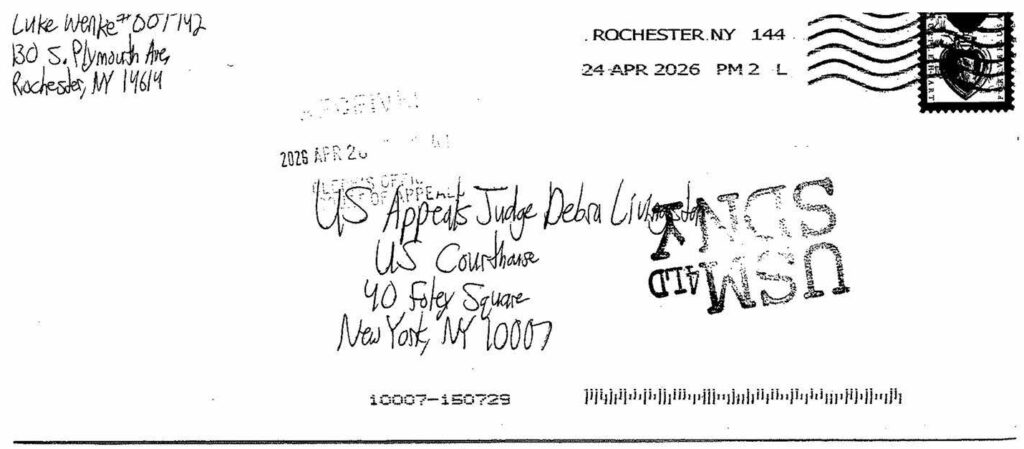 Luke Wenke #001142
130 S. Plymouth Ave,
Rochester, NY 14614
ROCHESTER NY 144
24 APR 2026 PM 2 L
2026 APR
CLERK'S OFFICE
OF APPEALS
US Appeals Judge Debra Livingston
US Courthouse
40 Foley Square
New York, NY 10007
USM SDNY
10007-150729